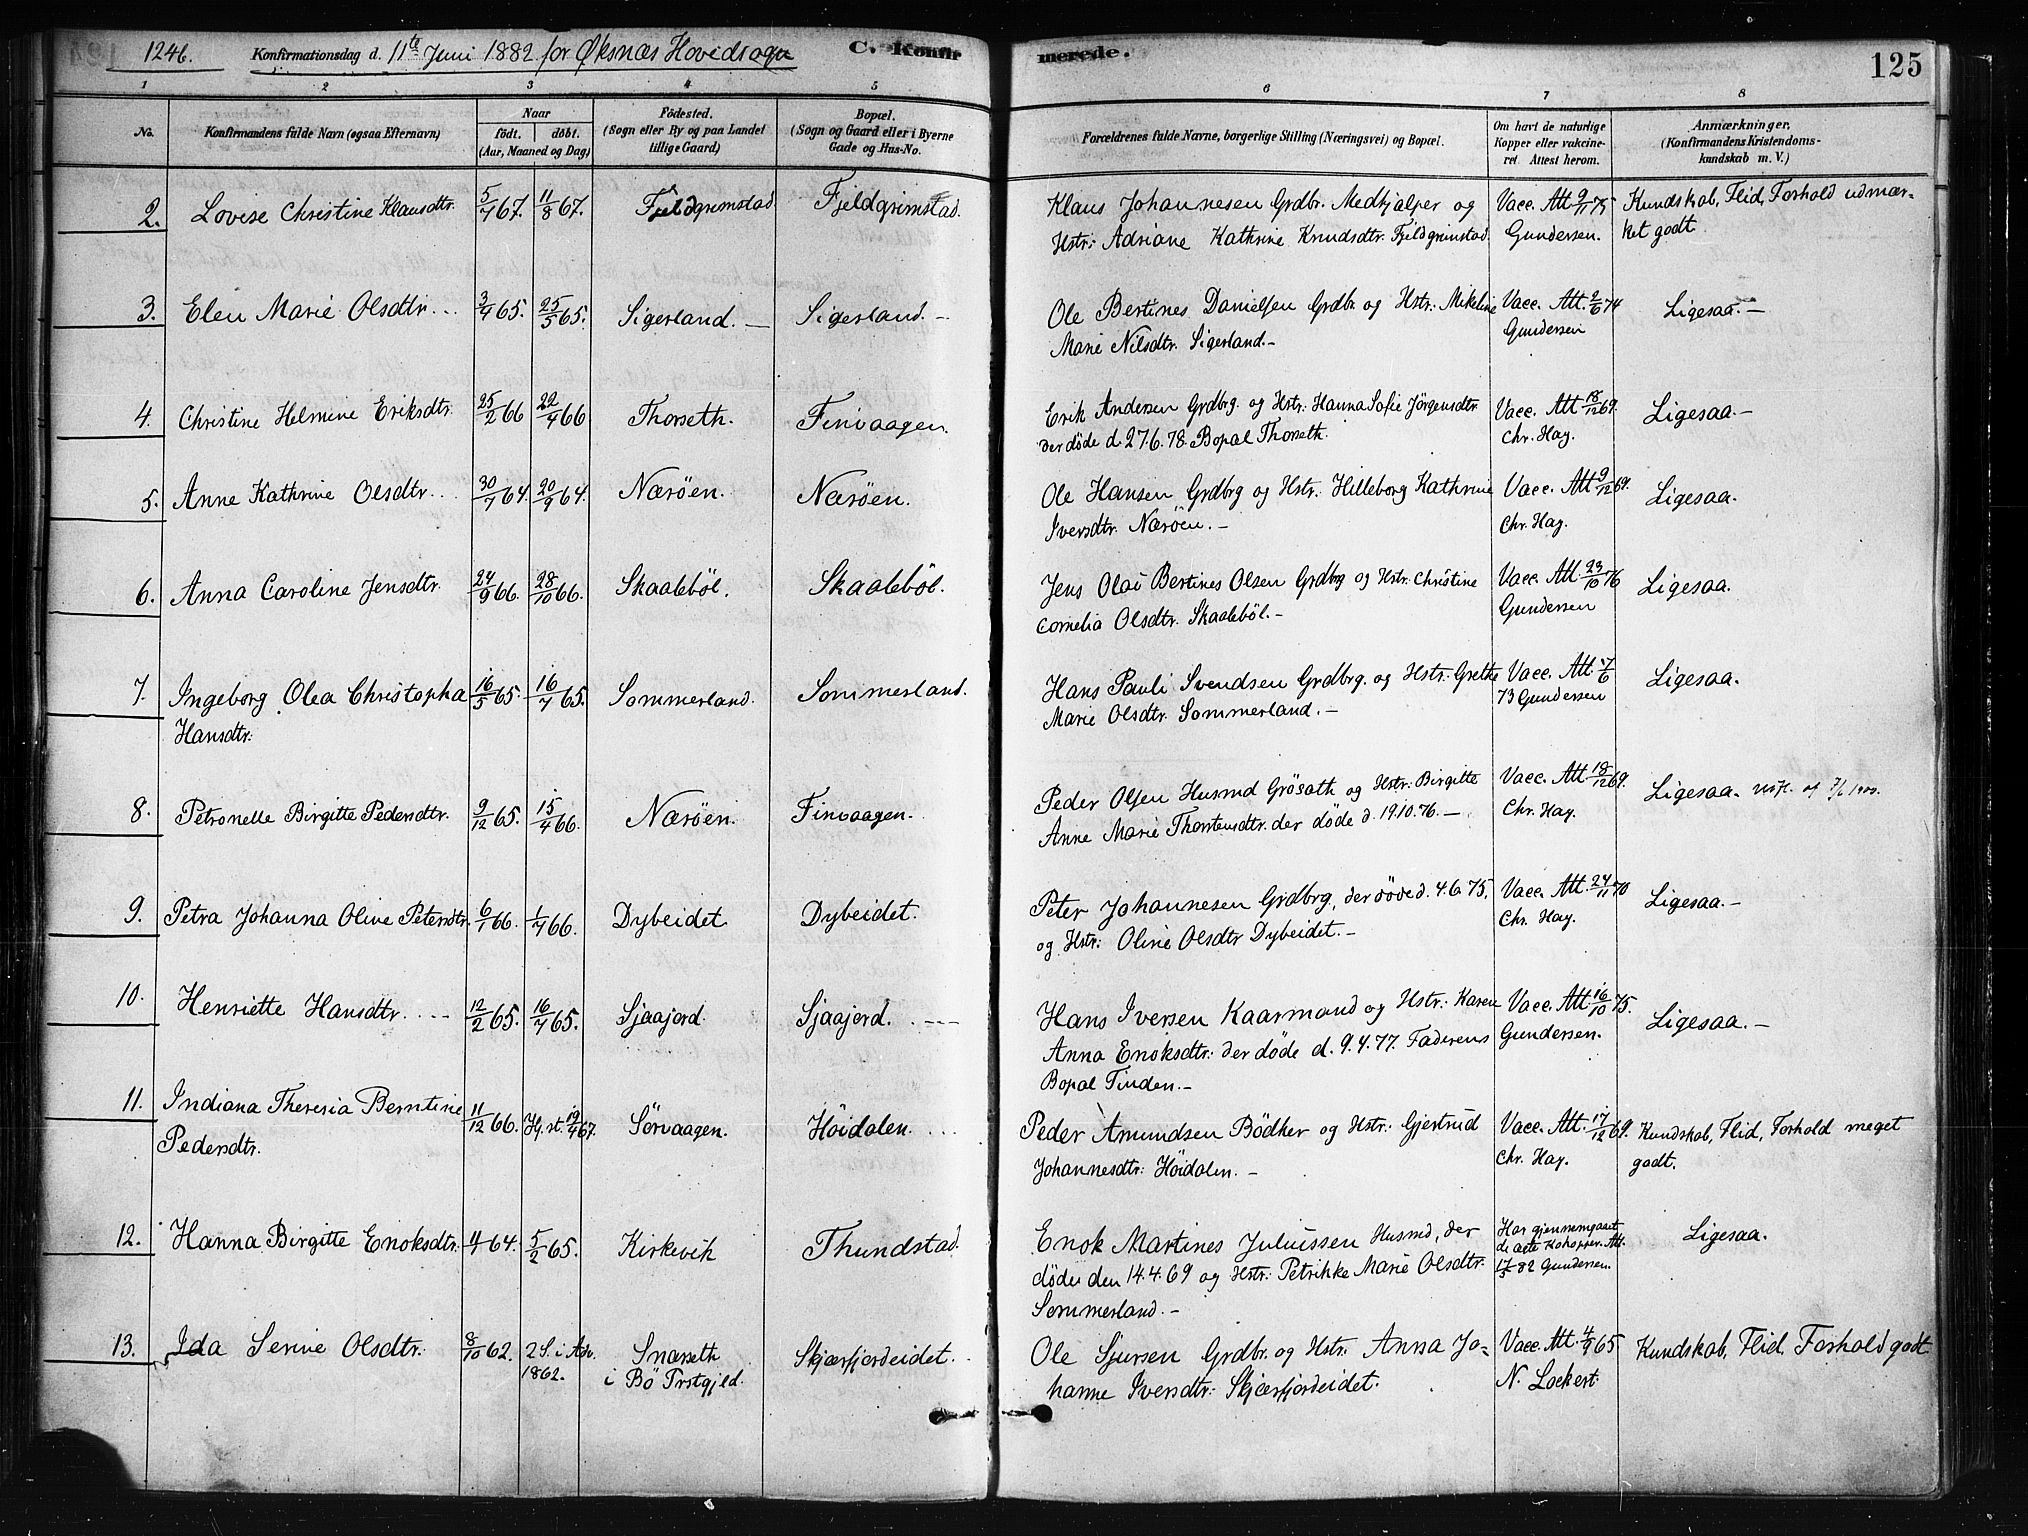 1246. Konfirmationsdag d. 11te Juni 1882 for Øksnæs Hovedsogn C. Konfirmerede. 125
1 2 3 4 5 6 7 8
No. Konfirmandens fulde Navn (ogsaa Efternavn) Naar født. døbt. (Aar, Maaned og Dag) Fødested. (Sogn eller By og paa Landet tillige Gaard) Bopæl. (Sogn og Gaard eller i Byerne Gade og Hus-No. Forældrenes fulde Navne, borgerlige Stilling (Næringsvei) og Bopæl. Om havt de naturlige Kopper eller vakcineret. Attest herom. Anmærkninger. (Konfirmandens Kristendomskundskab m. V.)
2. Lovise Christine Klausdtr. 5/7 67. 11/8 67. Fjeldgrimstad Fjeldgrimstad. Klaus Johannesen Grdbr. Medhjælper og Vacc. Att 9/11 75 Kundskab, Flid, Forhold udmær-
Hstr: Adriane Kathrine Knudsdtr. Fjeldgrimstad. Gundersen. ket godt.
3. Elen Marie Olsdtr... 3/4 65. 25/5 65. Sigerland. — Sigerland. - Ole Bertines Danielsen Grdbr og Hstr: Mikeline Vacc. Att. 2/6 74 Ligesaa. -
Marie Nilsdtr. Sigerland. - Gundersen
4. Christine Helmine Eriksdtr. 25/2 66 22/4 66 Thorseth. Finvaagen. Erik Andersen Grdbrg. og Hstr: Hanna Sofie Jörgensdtr Vacc. Att 18/12 69. Ligesaa. -
der døde d. 27.6.78. Bopæl Thorseth. Chr. Hag.
5. Anne Kathrine Olsdtr... 30/7 64. 20/9 64. Nærøen. Nærøen. Ole Hansen Grdbrg og Hstr. Hilleborg Kathrine Vacc. Att 9/12 69. Ligesaa.
Iversdtr. Nærøen. - Chr. Hag.
6. Anna Caroline Jensdtr. 24/9 66. 28/10 66. Skaaleböl. Skaaleböl. Jens Olai Bertines Olsen Grdbrg og Hstr. Christine Vacc. Att. 23/10 76 Ligesaa.
Cornelia Olsdtr. Skaaleböl. - Gundersen
7. Ingeborg Olea Christopha 16/5 65. 16/7 65. Sommerland. Sommerland. Hans Pauli Svendsen Grdbrg. og Hstr: Grethe Vacc. Att. 7/6 Ligesaa.
Hansdtr: Marie Olsdtr. Sommerland. - 73 Gundersen
8. Petronelle Birgitte Pedersdtr. 9/12 65. 15/4 66. Nærøen. Finvaagen. Peder Olsen Husmd Grösath og Hstr: Birgitte Vacc. Att 18/12 69. Ligesaa. 7/6 1900.
Anne Marie Thorstensdtr. der døde d. 19.10.76. - Chr. Hag.
9. Petra Johanna Olive Petersdtr. 6/1 66. 1/4 66. Dybeidet Dybeidet. Peter Johannesen Grdbrg, der døde d. 4.6.75. Vacc. Att. 24/11 70 Ligesaa. -
og Hstr: Oline Olsdtr Dybeidet. - Chr. Hag.
10. Henriette Hansdtr. ... 12/2 65. 16/4 65. Sjaajord. Sjaajord. Hans Iversen Kaarmand og Hstr: Karen Vacc. Att. 16/10 75. Ligesaa. -
Anna Enoksdtr: der døde d. 9.4.77. Faderens Gundersen.
Bopæl Tinden. -
11. Indiana Theresia Berntine 11/12 66. Hj. st. 19/4 67. Sørvaagen. Höidalen. ... Peder Amundsen Bödker og Hstr: Gjertrud Vacc. Att. 17/12 69. Kundskab, Flid, Forhold meget
Pedersdtr. Johannesdtr: Höidalen. - Chr. Hag. godt.
12. Hanna Birgitte Enoksdtr. 4/ 64. 5/2 65. Kirkevik Thundstad. Enok Martines Juliussen Husmd, der Har gjennemgaaet Ligesaa.
døde den 14.4.69 og Hstr: Petrikke Marie Olsdtr. de ægte Kokopper. Att.
Sommerland. - 17/5 82 Gundersen.
13. Ida Serine Olsdtr. 8/10 62. 2 S. i Adv. 1862. Snærseth Skjærfjordeidet. Ole Sjursen Grdbr. og Hstr. Anna Jo- Vacc. Att. 4/9 65 Kundskab, Flid. Forhold godt
i Bö Prstgjld. hanne Iversdtr: Skjærfjordeidet. N. Lockert.